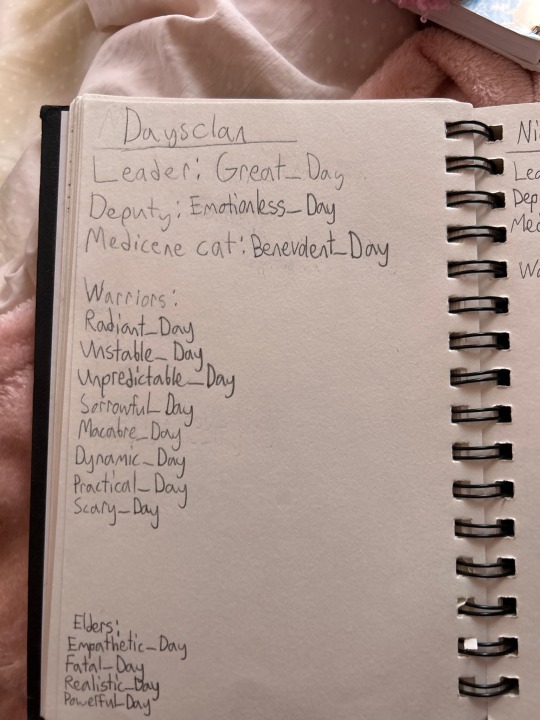 Daysclan
Leader: Great_Day
Deputy: Emotionless_Day
Medicene cat: Benevdent_Day
Warriors:
Radiant_Day
Unstable_Day
Unpredictable_Day
Sorrowful_Day
Macabre_Day
Dynamic_Day
Practical_Day
Scary_Day
Elders:
Empathetic_Day
Fatal_Day
Realistic_Day
Powerful_Day
Ni
Lea
Dep
Med
Wa